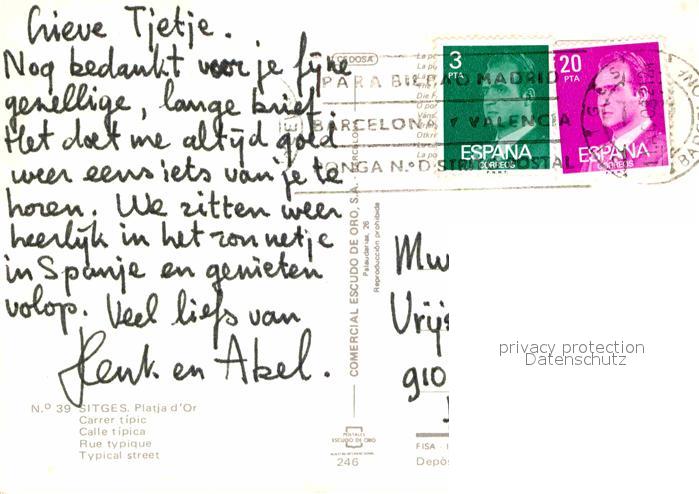 Lieve Tjetje.
Nog bedankt voor je fijne
gezellige, lange brief.
Het doet me altijd goed
weer eens iets van je te
horen. We zitten weer
heerlijk in het zonnetje
in Spanje en genieten
volop. Veel liefs van
Henk en Abel.
N.º 39 SITGES. Platja d'Or
Carrer típic
Calle típica
Rue typique
Typical street
COMERCIAL ESCUDO DE ORO, S.A.
Palaudarias, 26
Reproducción prohibida
POSTALES
ESCUDO DE ORO
246
3
PTA
ESPAÑA
CORREOS
20
PTA
ESPAÑA
CORREOS
PARA BILBAO MADRID
BARCELONA Y VALENCIA
PONGA N.º DISTRITO POSTAL
Mw
Vrijs
910
FISA - I
Depós
privacy protection
Datenschutz